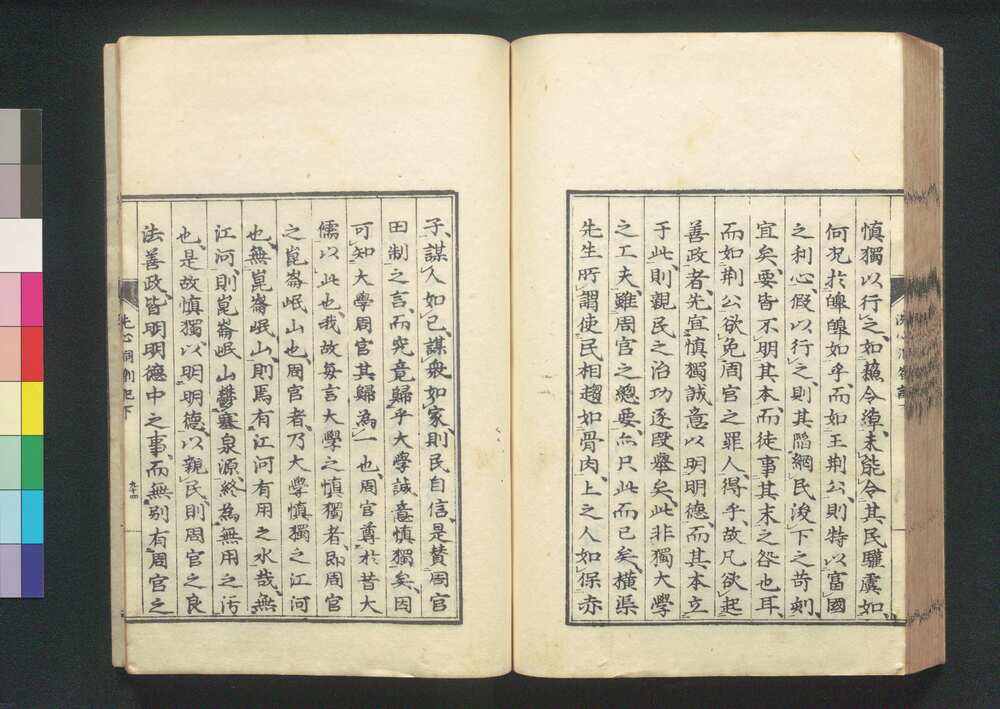 慎獨以行之、如蘓令綽、未能令其民驩虞如
何況於皥皥如乎、而如王荆公、則特以富國
之利心、假以行之、則其陷網民浚下之苛刺、
宜矣、要皆不明其本、而徒事其末之咎也耳、
而如荆公欲免周官之罪人、得乎、故凡欲起
善政者、先宜慎獨誠意以明明德、而其本立
于此、則親民之治功逐段舉矣、此非獨大學
之工夫、雖周官之總要、亦只此而已矣、橫渠
先生所謂使民相趨如骨肉、上之人如保赤
子、謀人如己、謀衆如家、則民自信、是賛周官
田制之言、而究竟歸乎大學誠意慎獨矣、因
可知大學周官其歸為一也、周官尊於昔大
儒以此也、我故毎言大學之慎獨者、即周官
之崑崙岷山也、周官者、乃大學慎獨之江河
也、無崑崙岷山、則焉有江河有用之水哉、無
江河、則崑崙岷山欝塞泉源、終為無用之汚
也、是故慎獨以明明德、以親民、則周官之良
法善政、皆明明德中之事、而無別有周官之
洗心洞劄記下
九十四